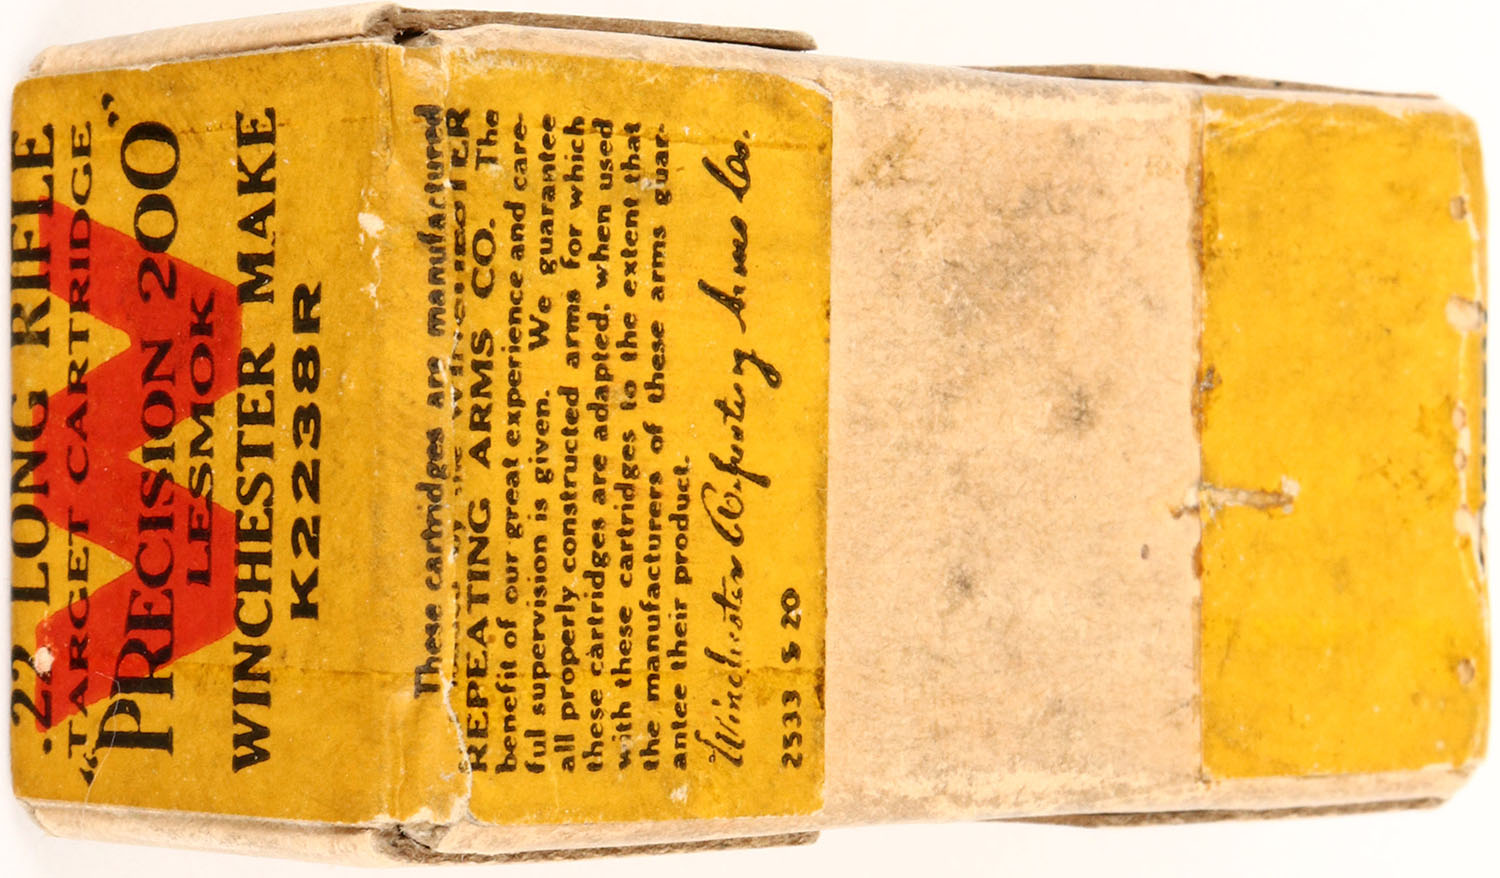 .22 LONG RIFLE
TARGET CARTRIDGE
"PRECISION 200"
LESMOK
WINCHESTER MAKE
K2238R
These cartridges are manufactured
by the WINCHESTER
REPEATING ARMS CO. The
benefit of our great experience and care-
ful supervision is given. We guarantee
all properly constructed arms for which
these cartridges are adapted, when used
with these cartridges to the extent that
the manufacturers of these arms guar-
antee their product.
Winchester Repeating Arms Co.
2533 S 20